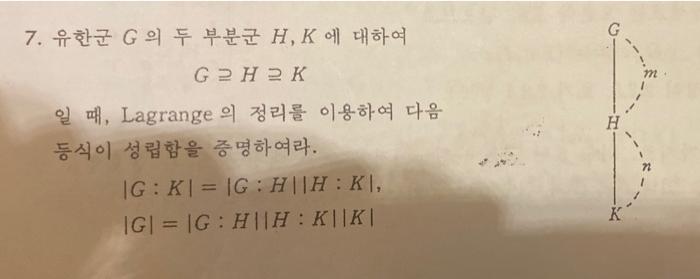 7. 유한군 G 의 두 부분군 H, K 에 대하여
G ⊇ H ⊇ K
일 때, Lagrange 의 정리를 이용하여 다음
등식이 성립함을 증명하여라.
|G : K| = |G : H||H : K|,
|G| = |G : H||H : K||K|
G
m
H
n
K